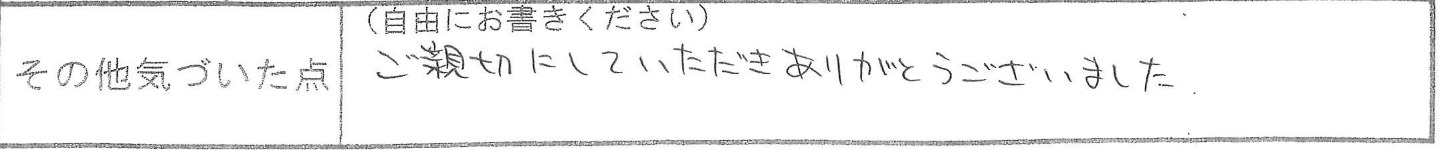 (自由にお書きください)
その他気づいた点
ご親切にしていただきありがとうございました.